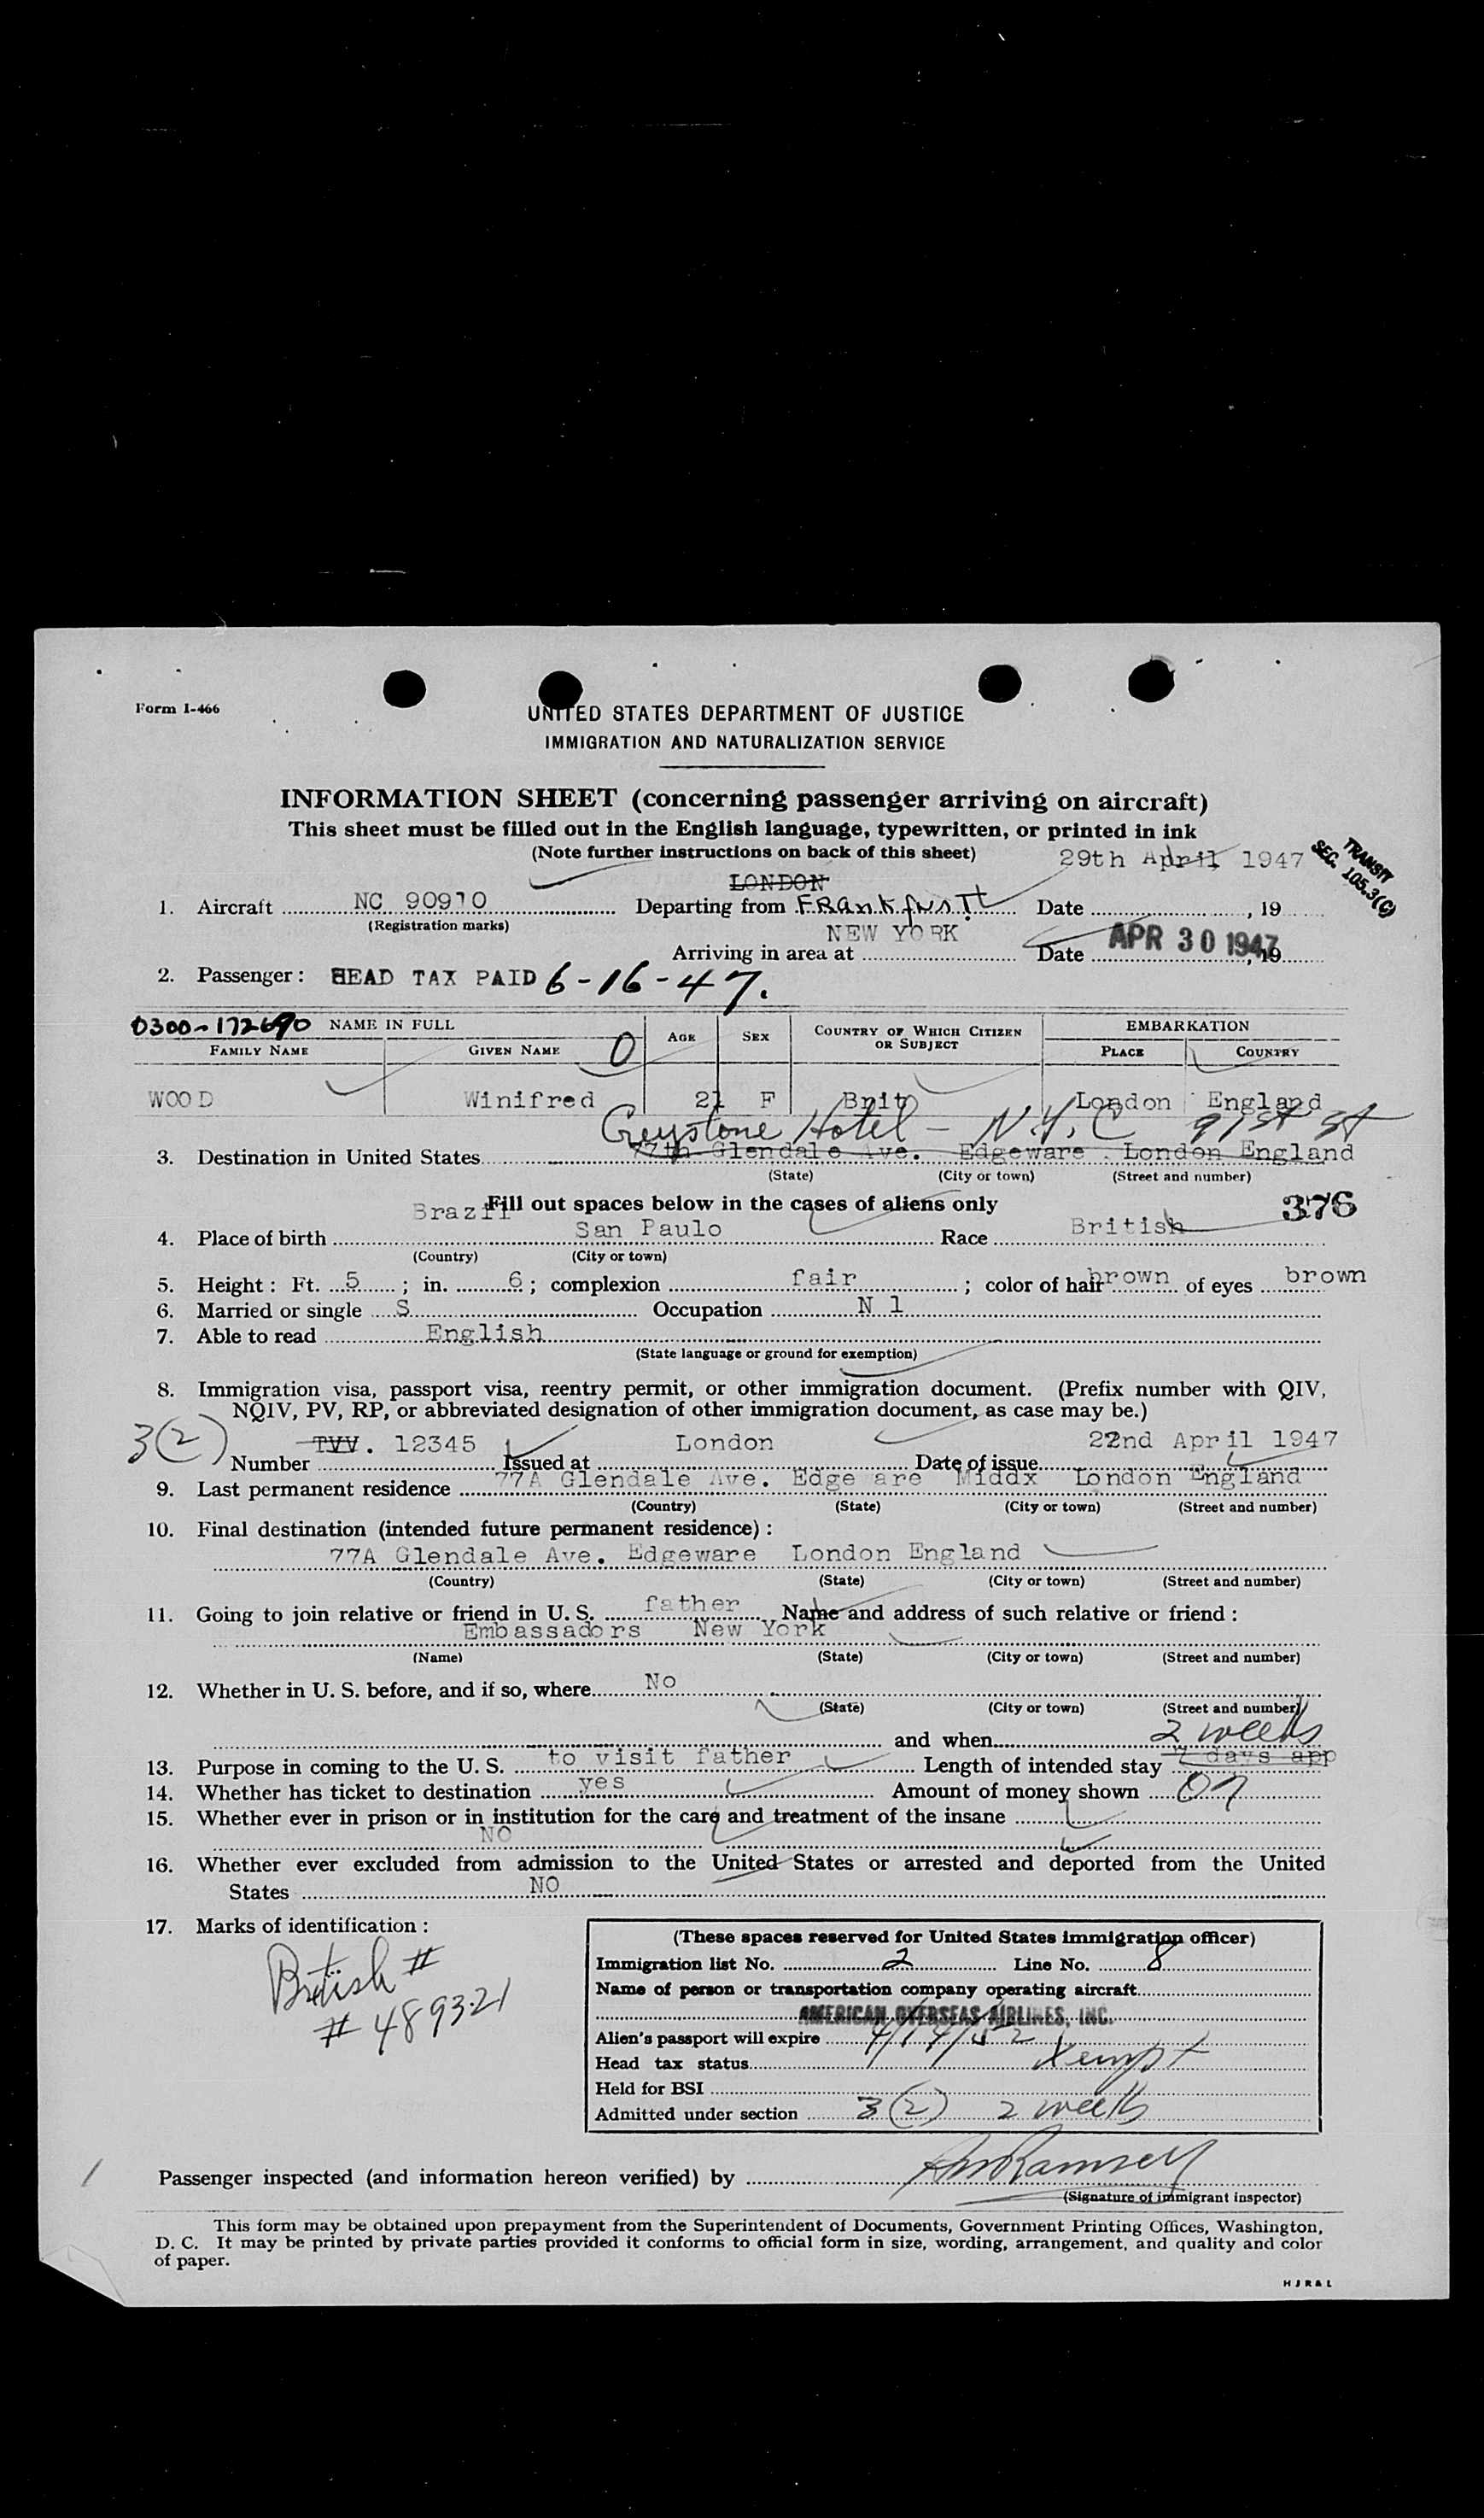 Form I-466
UNITED STATES DEPARTMENT OF JUSTICE
IMMIGRATION AND NATURALIZATION SERVICE
INFORMATION SHEET (concerning passenger arriving on aircraft)
This sheet must be filled out in the English language, typewritten, or printed in ink
(Note further instructions on back of this sheet)
29th April 1947
TRANSIT
SEC. 105.3(C)
LONDON
1. Aircraft NC 90910 Departing from FRankfurt Date , 19
(Registration marks)
NEW YORK
Arriving in area at Date APR 30 1947, 19
2. Passenger: HEAD TAX PAID 6-16-47.
0300-172690 NAME IN FULL AGE SEX COUNTRY OF WHICH CITIZEN OR SUBJECT EMBARKATION
FAMILY NAME GIVEN NAME 0 PLACE COUNTRY
WOOD Winifred 21 F Brit London England
Greystone Hotel - N.Y.C 91st St
3. Destination in United States 77th Glendale Ave. Edgeware London England
(State) (City or town) (Street and number)
Fill out spaces below in the cases of aliens only 376
4. Place of birth Brazil San Paulo Race British
(Country) (City or town)
5. Height: Ft. 5; in. 6; complexion fair; color of hair brown of eyes brown
6. Married or single S Occupation N l
7. Able to read English
(State language or ground for exemption)
8. Immigration visa, passport visa, reentry permit, or other immigration document. (Prefix number with QIV,
NQIV, PV, RP, or abbreviated designation of other immigration document, as case may be.)
3(2) Number TVV. 12345 Issued at London Date of issue 22nd April 1947
9. Last permanent residence 77A Glendale Ave. Edge are Middx London England
(Country) (State) (City or town) (Street and number)
10. Final destination (intended future permanent residence):
77A Glendale Ave. Edgeware London England
(Country) (State) (City or town) (Street and number)
11. Going to join relative or friend in U. S. father Name and address of such relative or friend:
Embassadors New York
(Name) (State) (City or town) (Street and number)
12. Whether in U. S. before, and if so, where No
(State) (City or town) (Street and number)
and when
2 weeks
13. Purpose in coming to the U. S. to visit father Length of intended stay 7 days app
14. Whether has ticket to destination yes Amount of money shown
15. Whether ever in prison or in institution for the care and treatment of the insane
NO
16. Whether ever excluded from admission to the United States or arrested and deported from the United
States NO
17. Marks of identification:
British #
# 489321
(These spaces reserved for United States immigration officer)
Immigration list No. 2 Line No. 8
Name of person or transportation company operating aircraft
AMERICAN OVERSEAS AIRLINES, INC.
Alien's passport will expire 4/14/52
Head tax status Xempt
Held for BSI
Admitted under section 3(2) 2 weeks
Passenger inspected (and information hereon verified) by
(Signature of immigrant inspector)
This form may be obtained upon prepayment from the Superintendent of Documents, Government Printing Offices, Washington,
D. C. It may be printed by private parties provided it conforms to official form in size, wording, arrangement, and quality and color
of paper.
H J R & L